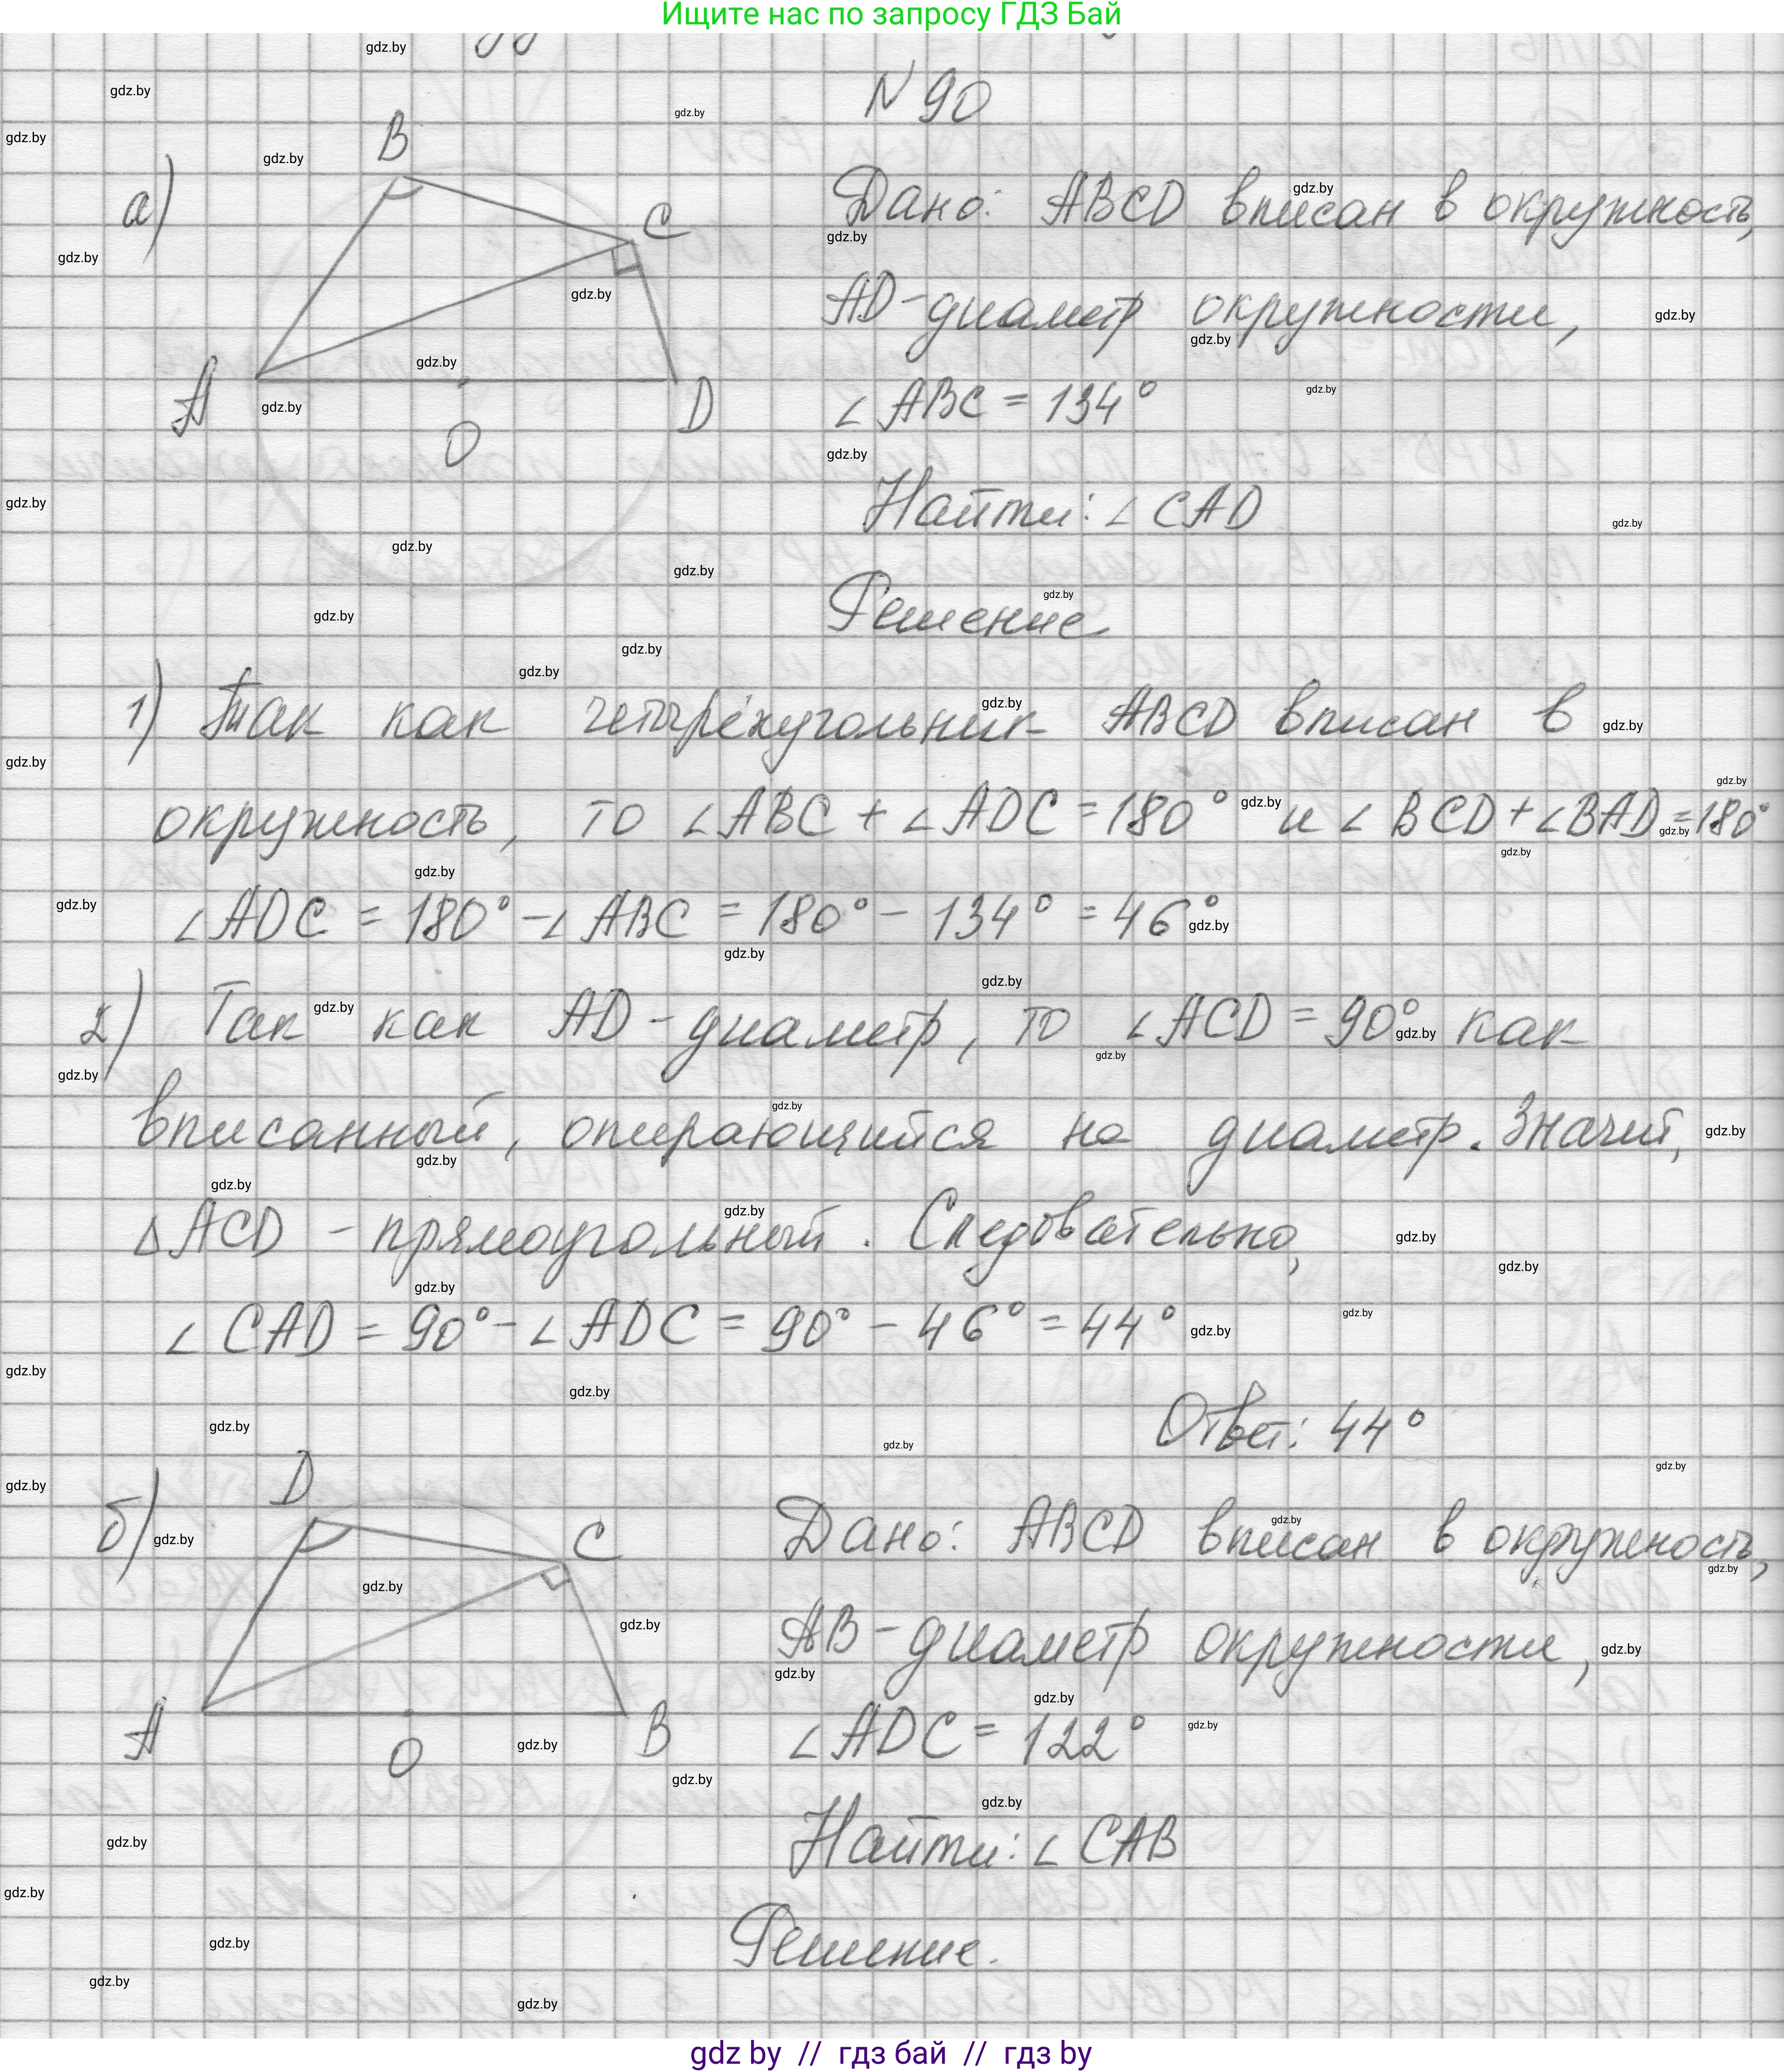 Ищите нас по запросу ГДЗ Бай
N 90
а)
B
C
A
O
D
Дано: ABCD вписан в окружность,
AD-диаметр окружности,
∠ABC = 134°
Найти: ∠CAD
Решение
1) Так как четырёхугольник ABCD вписан в
окружность, то ∠ABC + ∠ADC = 180° и ∠BCD + ∠BAD = 180°
∠ADC = 180° - ∠ABC = 180° - 134° = 46°
2) Так как AD - диаметр, то ∠ACD = 90° как
вписанный, опирающийся на диаметр. Значит,
△ACD - прямоугольный. Следовательно,
∠CAD = 90° - ∠ADC = 90° - 46° = 44°
Ответ: 44°
б)
D
C
A
O
B
Дано: ABCD вписан в окружность,
AB-диаметр окружности,
∠ADC = 122°
Найти: ∠CAB
Решение.
gdz by // гдз бай // гдз by